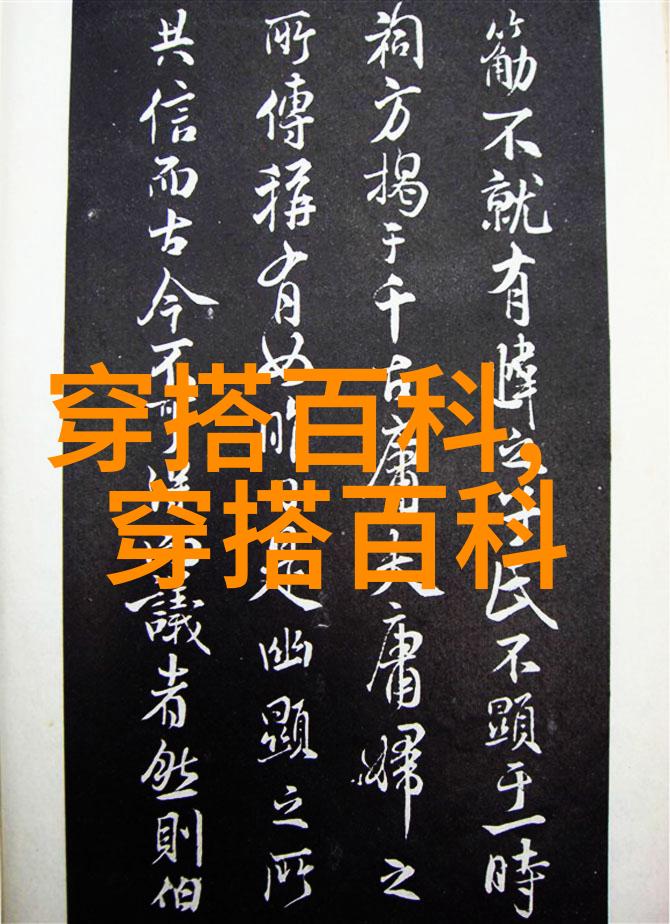 不就有之氏不顯于一時
祠方揭于千古庸夫庸婦之
所傳稱有如是幽顯之所
共信而古今不可議者然則伯
穿搭百科,
穿搭百科